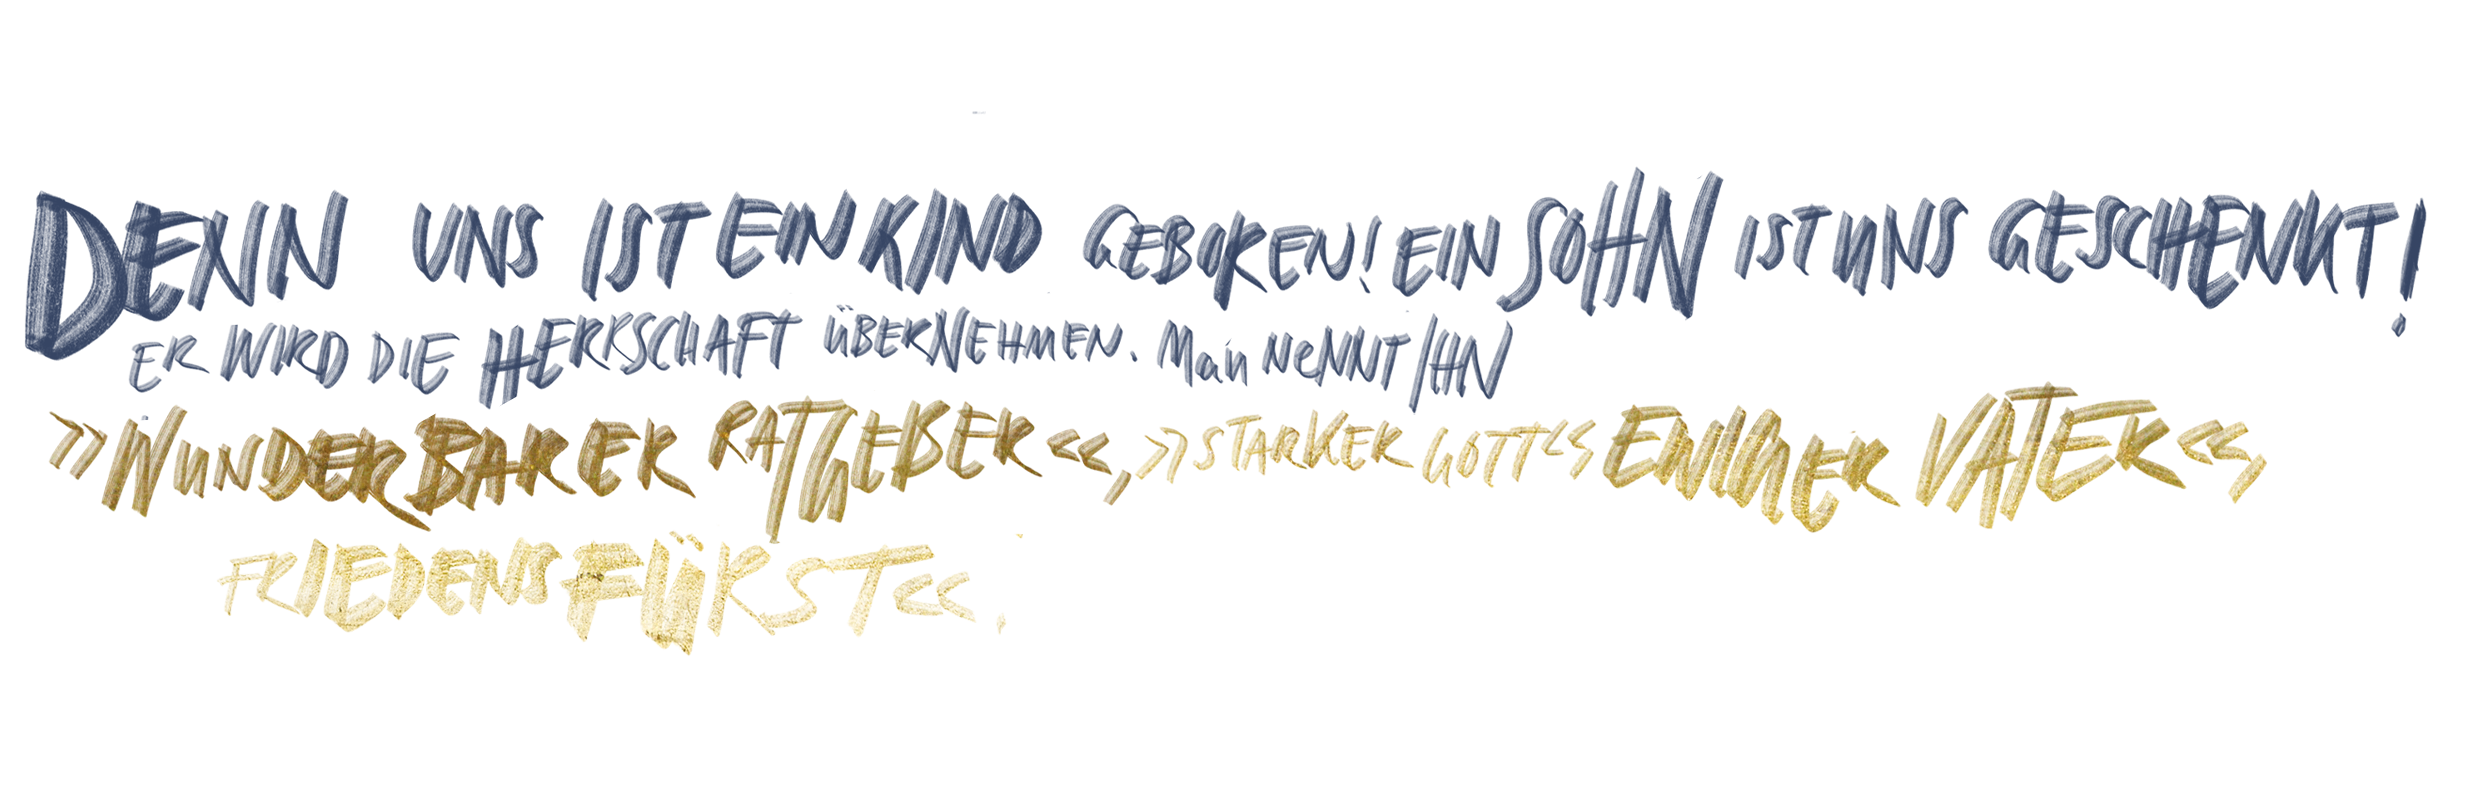 DENN UNS IST EIN KIND GEBOREN! EIN SOHN IST UNS GESCHENKT!
ER WIRD DIE HERRSCHAFT ÜBERNEHMEN. Man NeNNT IHN
»WUNDERBARER RATGEBER«, »STARKER GOTT« EWIGER VATER«,
FRIEDENSFÜRST«.